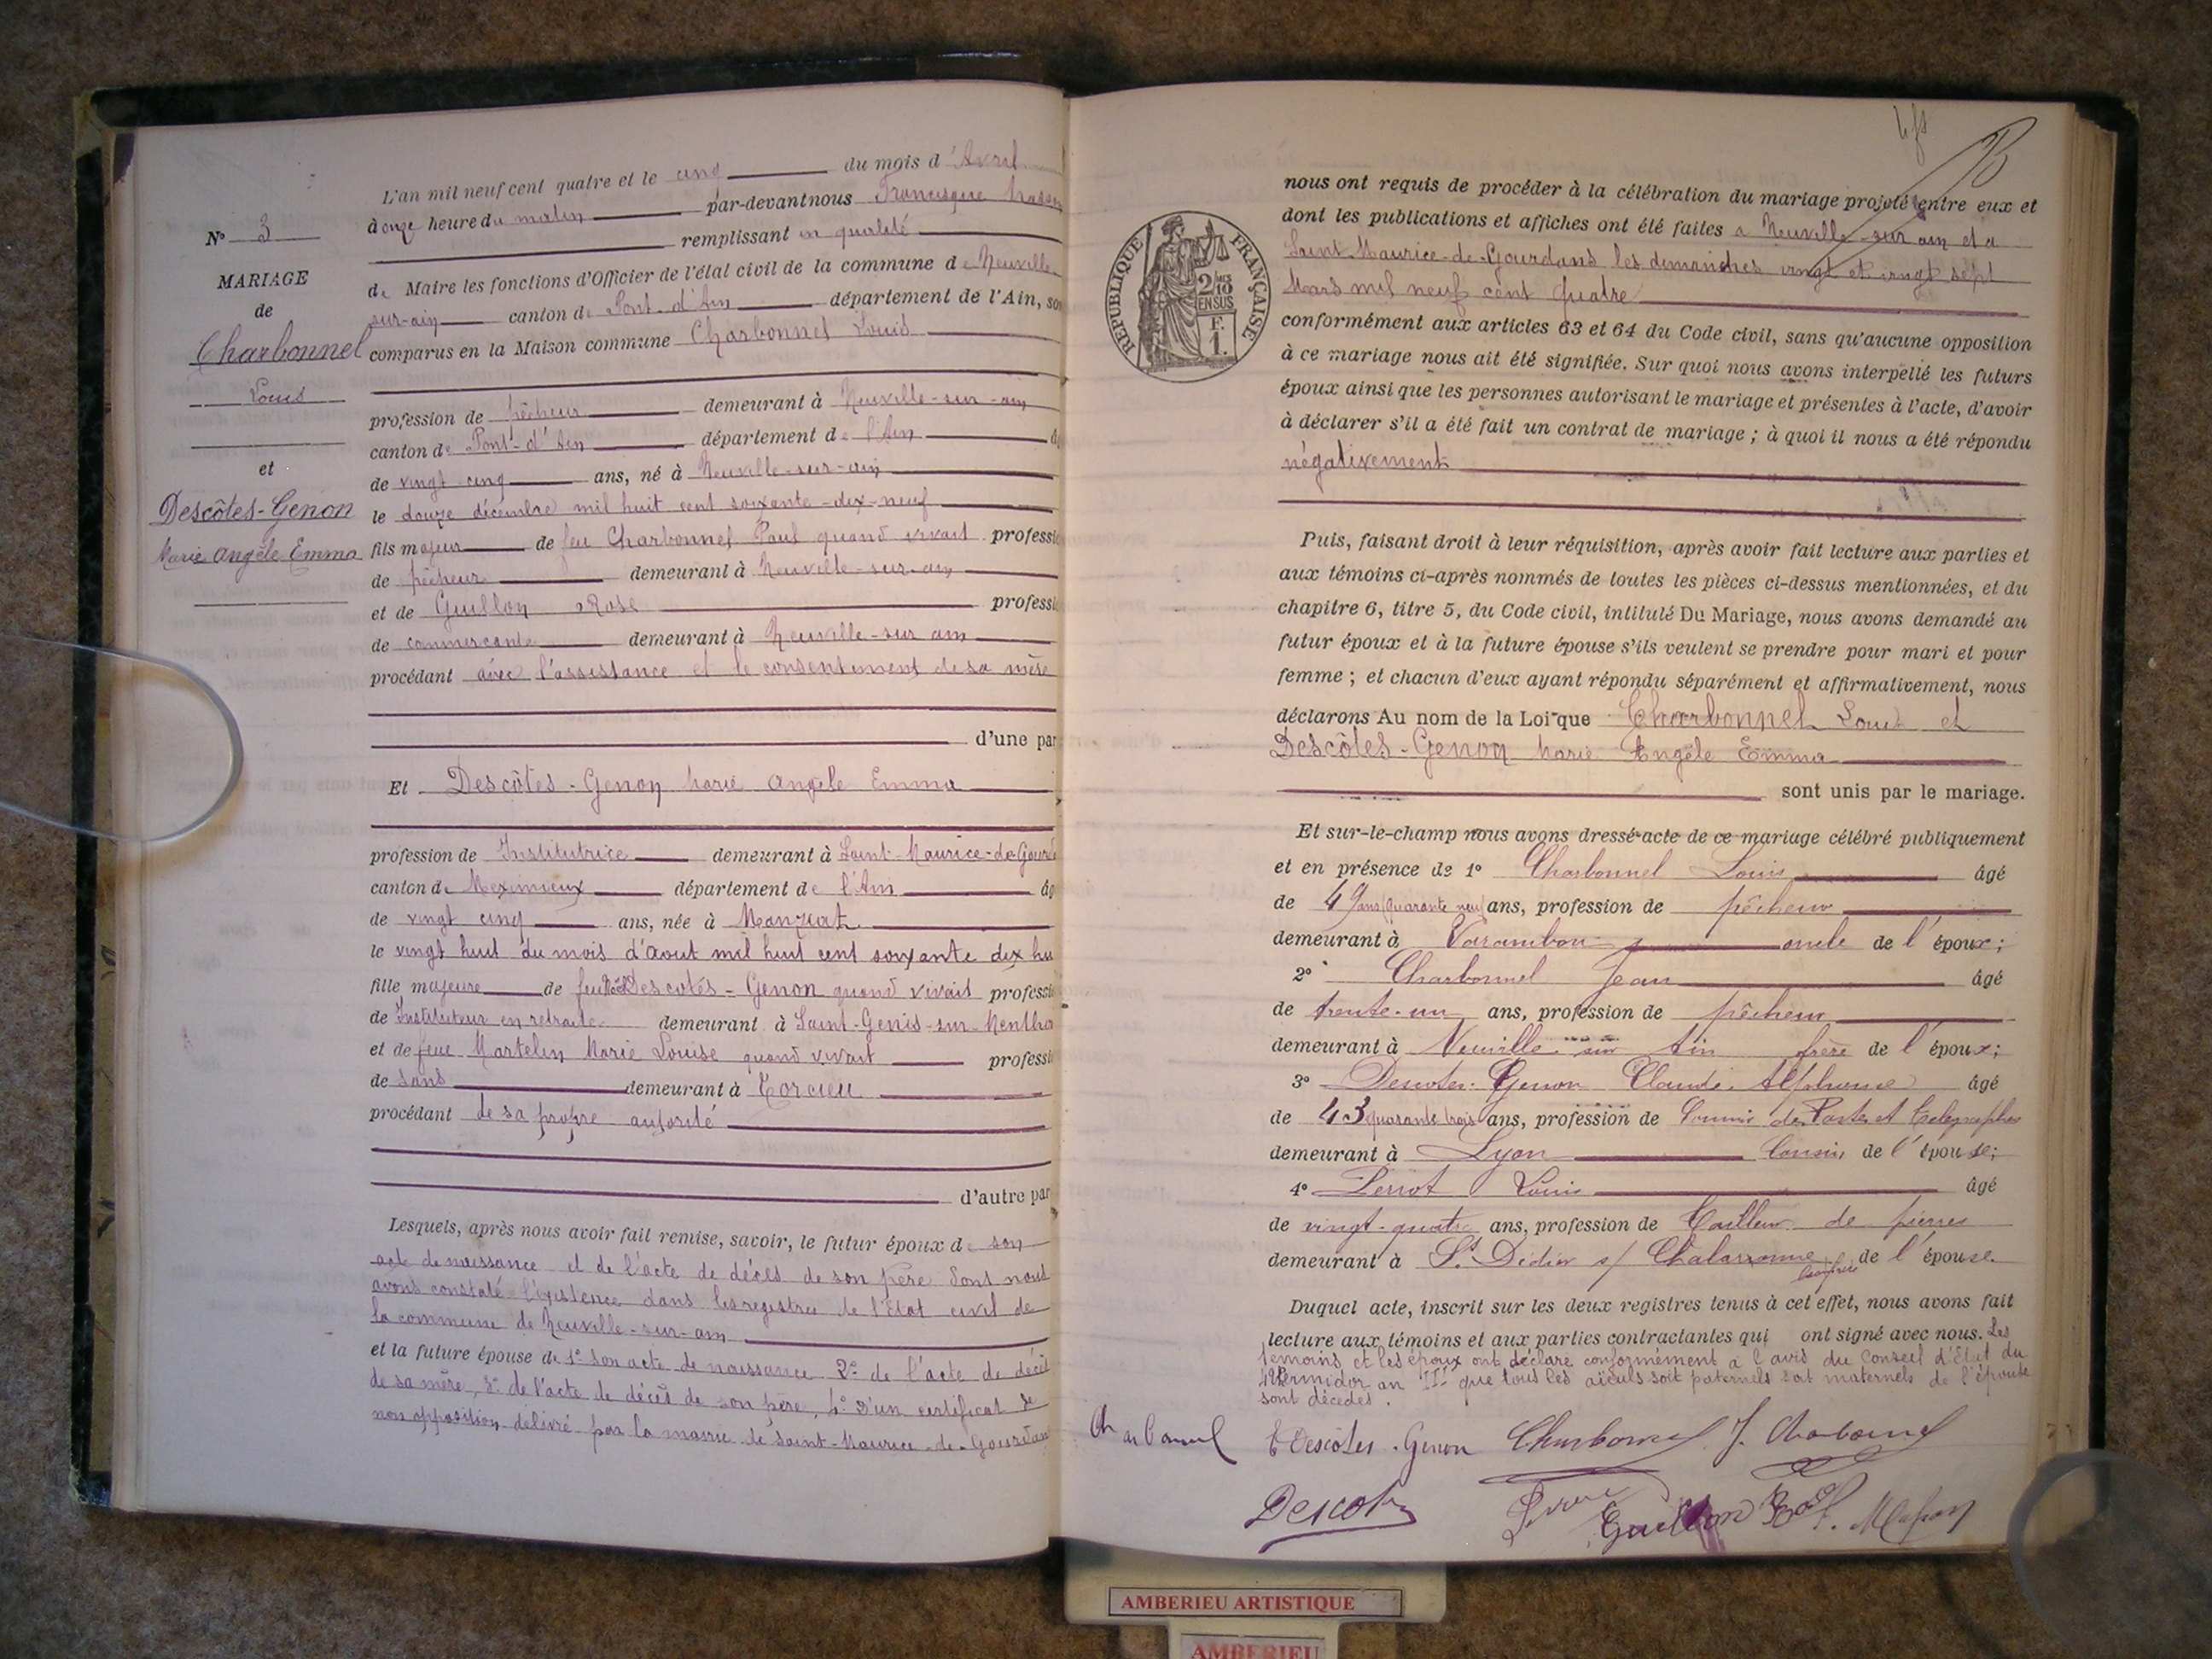 L'an mil neuf cent quatre et le cinq du mois d'Avril
à onze heure du matin par-devant nous Francisque
remplissant en qualité
de Maire les fonctions d'Officier de l'état civil de la commune de Neuville-
sur-ain canton de Pont-d'Ain département de l'Ain, so
comparus en la Maison commune Charbonnel Louis
N° 3
MARIAGE
de
Charbonnel
Louis
et
Descôtes-Genon
Marie Angèle Emma
profession de pêcheur demeurant à Neuville-sur-ain
canton de Pont-d'Ain département de l'Ain
de vingt cinq ans, né à Neuville-sur-ain
le douze décembre mil huit cent soixante-dix-neuf
fils majeur de feu Charbonnel Paul quand vivait professi
de pêcheur demeurant à Neuville-sur-ain
et de Guillon Rose professi
de commercante demeurant à Neuville-sur ain
procédant avec l'assistance et le consentement de sa mère
d'une par
Et Descôtes-Genon Marie Angèle Emma
profession de Institutrice demeurant à Saint-Maurice-de-Gourda
canton de Meximieux département de l'Ain âg
de vingt cinq ans, née à Manziat
le vingt huit du mois d'aout mil huit cent soixante dix hu
fille majeure de feu Descotés-Genon quand vivait professi
de Instituteur en retraite demeurant à Saint-Genis-sur-Mentho
et de feue Martelin Marie Louise quand vivait professi
de sans demeurant à Torcieu
procédant de sa propre autorité
d'autre par
Lesquels, après nous avoir fait remise, savoir, le futur époux de son
acte de naissance et de l'acte de décès de son père dont nous
avons constaté l'existence dans les registres de l'Etat civil de
la commune de Neuville-sur-ain
et la future épouse de 1° son acte de naissance 2° de l'acte de décès
de sa mère, 3° de l'acte de décès de son père, 4° d'un certificat de
non opposition délivré par la mairie de Saint-Maurice-de-Gourdan
RÉPUBLIQUE FRANÇAISE
2/10
EN SUS
F.
1.
nous ont requis de procéder à la célébration du mariage projeté entre eux et
dont les publications et affiches ont été faites à Neuville-sur ain et a
Saint-Maurice-de-Gourdans les dimanches vingt et vingt sept
Mars mil neuf cent quatre
conformément aux articles 63 et 64 du Code civil, sans qu'aucune opposition
à ce mariage nous ait été signifiée. Sur quoi nous avons interpellé les futurs
époux ainsi que les personnes autorisant le mariage et présentes à l'acte, d'avoir
à déclarer s'il a été fait un contrat de mariage ; à quoi il nous a été répondu
négativement
Puis, faisant droit à leur réquisition, après avoir fait lecture aux parties et
aux témoins ci-après nommés de toutes les pièces ci-dessus mentionnées, et du
chapitre 6, titre 5, du Code civil, intitulé Du Mariage, nous avons demandé au
futur époux et à la future épouse s'ils veulent se prendre pour mari et pour
femme ; et chacun d'eux ayant répondu séparément et affirmativement, nous
déclarons Au nom de la Loi que Charbonnel Louis et
Descôtes-Genon Marie Angèle Emma
sont unis par le mariage.
Et sur-le-champ nous avons dressé acte de ce mariage célébré publiquement
et en présence de 1° Charbonnel Louis âgé
de 49 ans (quarante neuf) ans, profession de pêcheur
demeurant à Varambon oncle de l'époux;
2° Charbonnel Jean âgé
de trente-un ans, profession de pêcheur
demeurant à Neuville sur Ain frère de l'époux;
3° Descotes-Genon Claude Alphonse âgé
de 43 quarante trois ans, profession de Commis des Postes et Télégraphes
demeurant à Lyon Cousin de l'épouse;
4° Perrot Louis âgé
de vingt-quatre ans, profession de Tailleur de pierres
demeurant à St Didier s/ Chalaronne de l'épouse.
Duquel acte, inscrit sur les deux registres tenus à cet effet, nous avons fait
lecture aux témoins et aux parties contractantes qui ont signé avec nous. Les
témoins et les époux ont déclaré conformément à l'avis du Conseil d'Etat du
4 thermidor an que tous les aïeuls soit paternels soit maternels de l'épouse
sont décédés.
Charbonnel E Descôtes-Genon Charbonnel J. Charbonnel
Descotes Guillon
AMBERIEU ARTISTIQUE
AMBERIEU